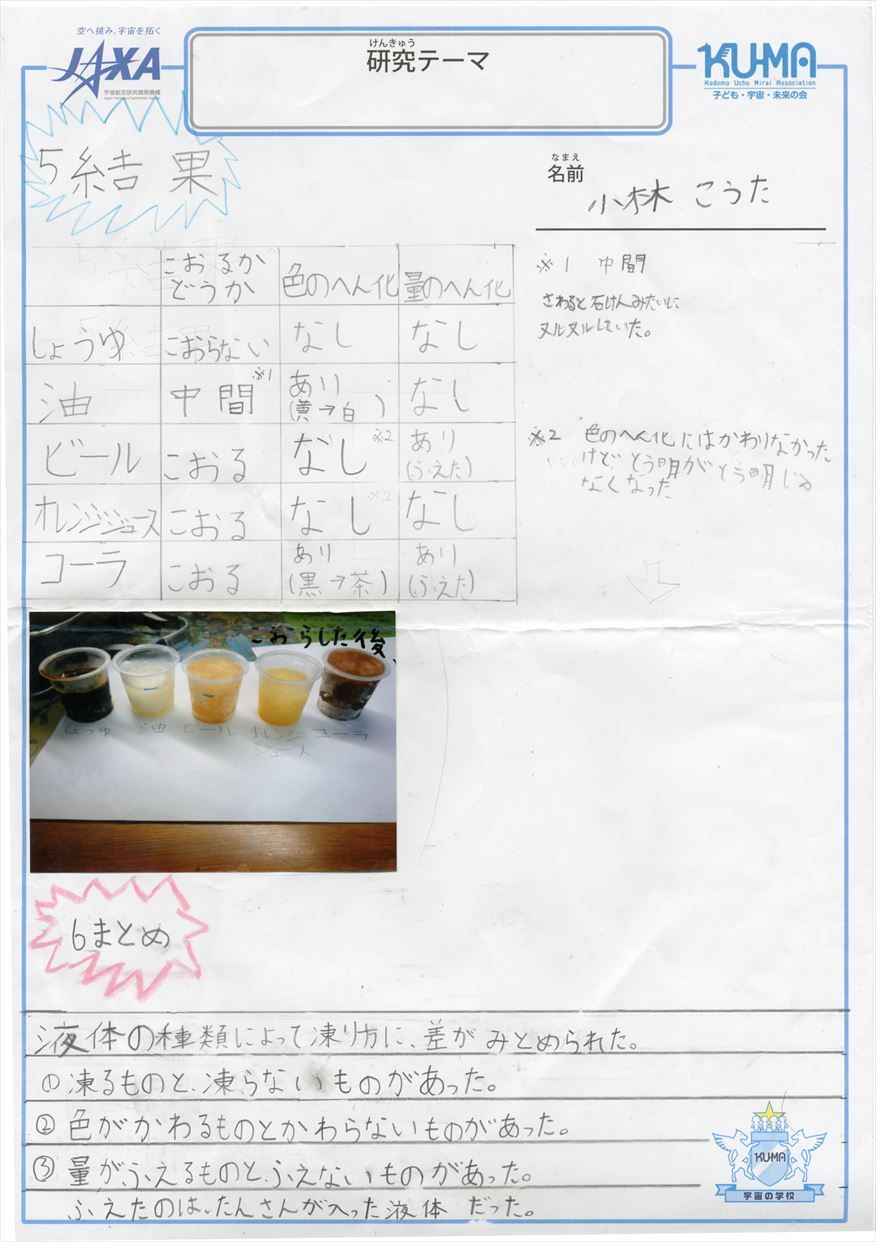 空へ挑み、宇宙を拓く
JAXA
宇宙航空研究開発機構
Japan Aerospace Exploration Agency
けんきゅう
研究テーマ
KU-MA
Kodomo Uchu Mirai Association
子ども・宇宙・未来の会
5結果
なまえ
名前
小林 こうた
こおるか どうか 色のへん化 量のへん化
しょうゆ こおらない なし なし
油 中間※1 あり(黄→白) なし
ビール こおる なし※2 あり(ふえた)
オレンジジュース こおる なし※2 なし
コーラ こおる あり(黒→茶) あり(ふえた)
※1 中間
さわると石けんみたいに
ヌルヌルしていた。
※2 色のへん化にはかわりなかった
けど とう明が とう明じゃ
なくなった
こおらした後
しょうゆ 油 ビール オレンジ コーラ
ジュース
6まとめ
液体の種類によって凍り方に、差がみとめられた。
の凍るものと、凍らないものがあった。
②色がかわるものとかわらないものがあった。
③量がふえるものと、ふえないものがあった。
ふえたのは、たんさんが入った液体だった。
KU-MA
宇宙の学校